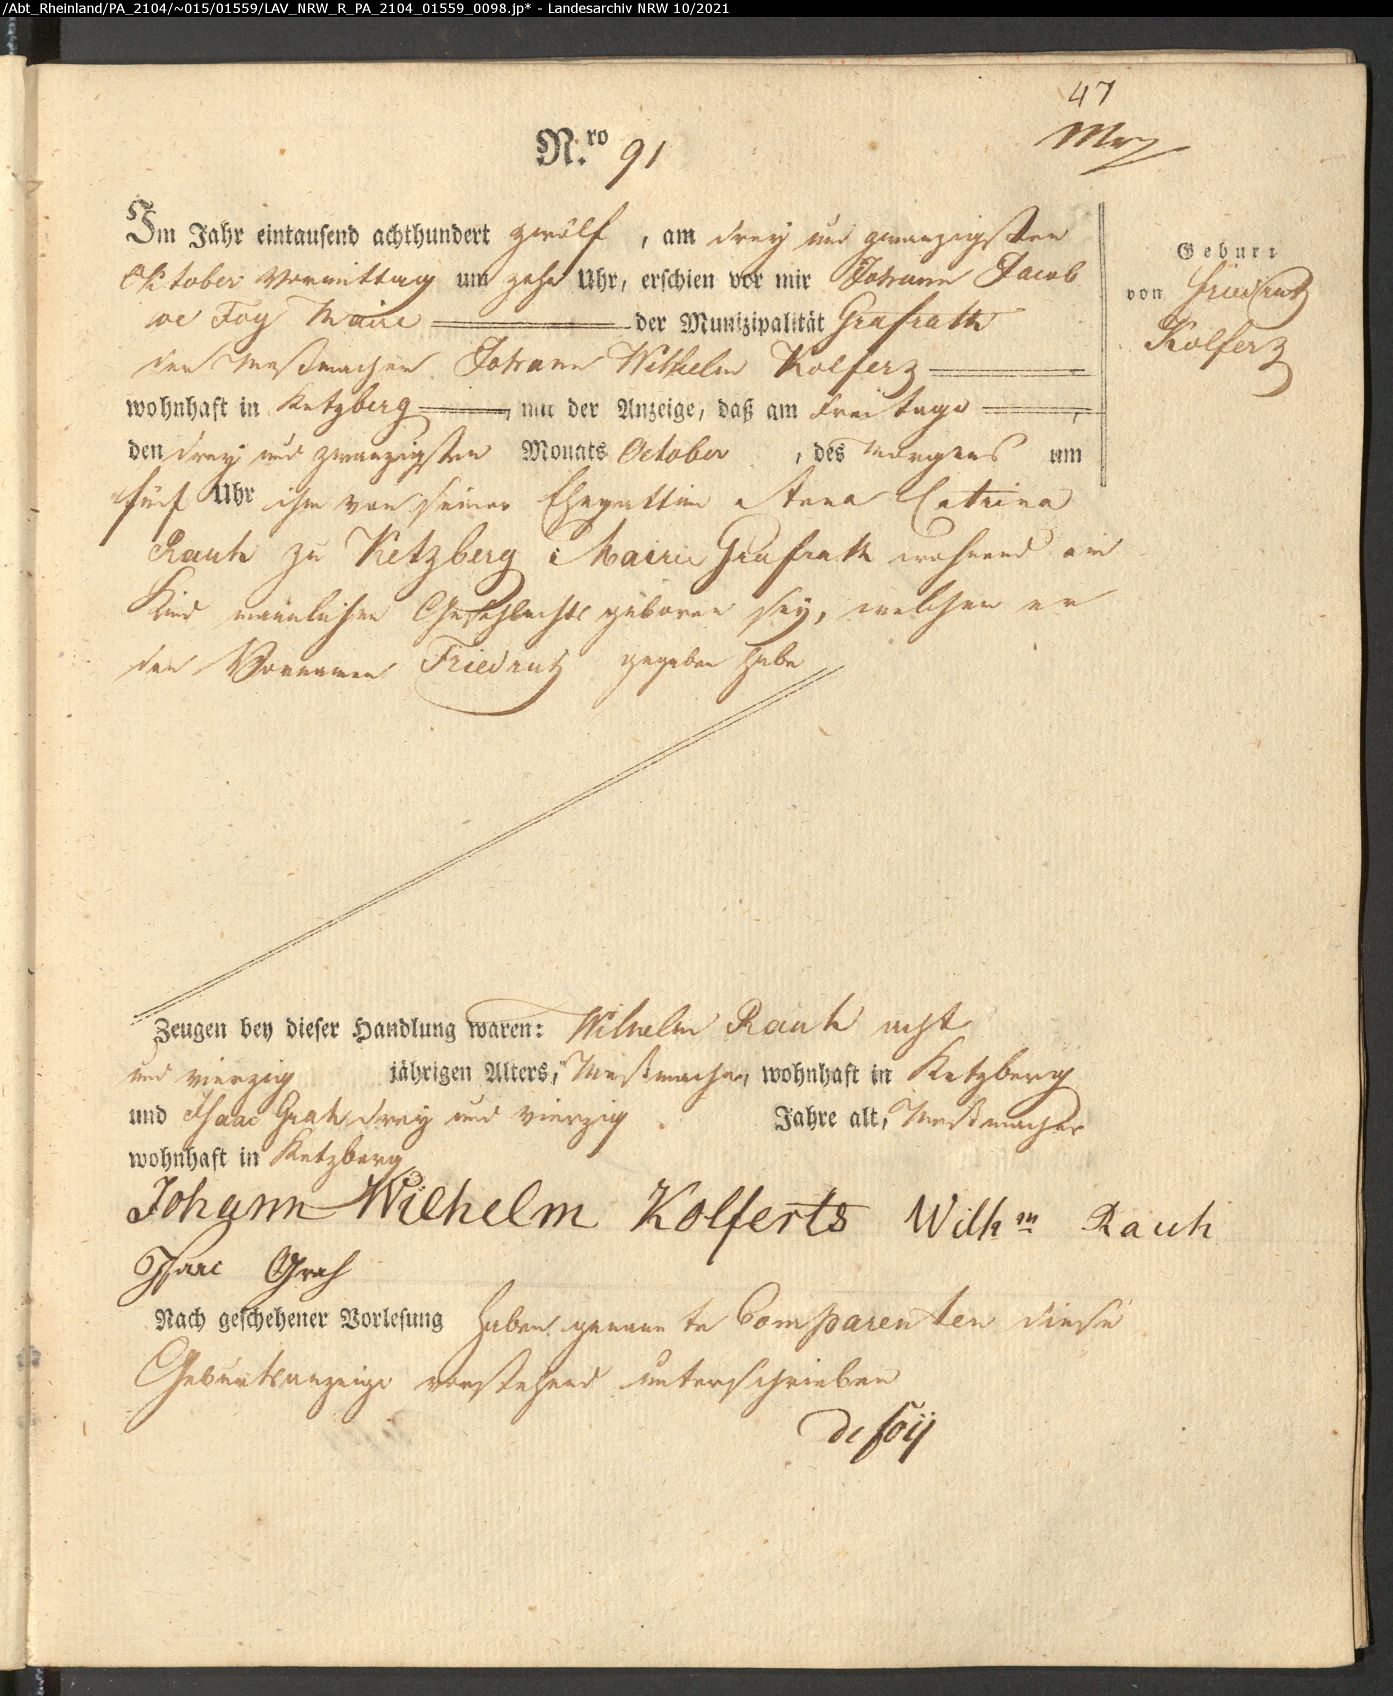 /Abt_Rheinland/PA_2104/~015/01559/LAV_NRW_R_PA_2104_01559_0098.jp* - Landesarchiv NRW 10/2021
47
N.ro 91
Im Jahr eintausend achthundert zwölf , am drey und zwanzigsten
Oktober Vormittag um zehn Uhr, erschien vor mir Johann Jacob
de Foy Maire der Munizipalität Grafrath
der Meßmacher Johann Wilhelm Kolferz
wohnhaft in Ketzberg , mit der Anzeige, daß am Freitage ,
den drey und zwanzigsten Monats October , des Morgens um
fünf Uhr ihm von seiner Ehegattin Anna Catrina
Rauh zu Ketzberg Mairie Grafrath wohnend ein
Kind männlichen Geschlechts geboren sey, welchem er
den Vornamen Friedrich gegeben habe
Geburt
von Friedrich
Kolferz
Zeugen bey dieser Handlung waren: Wilhelm Rauh acht
und vierzig jährigen Alters, Meßmacher, wohnhaft in Ketzberg
und Isaac Grah drey und vierzig Jahre alt, Meßmacher
wohnhaft in Ketzberg
Johann Wilhelm Kolferts Wilhm Rauh
Isaac Grah
Nach geschehener Vorlesung haben genannte Comparenten diese
Geburtsanzeige vorstehend unterschrieben
de foÿ